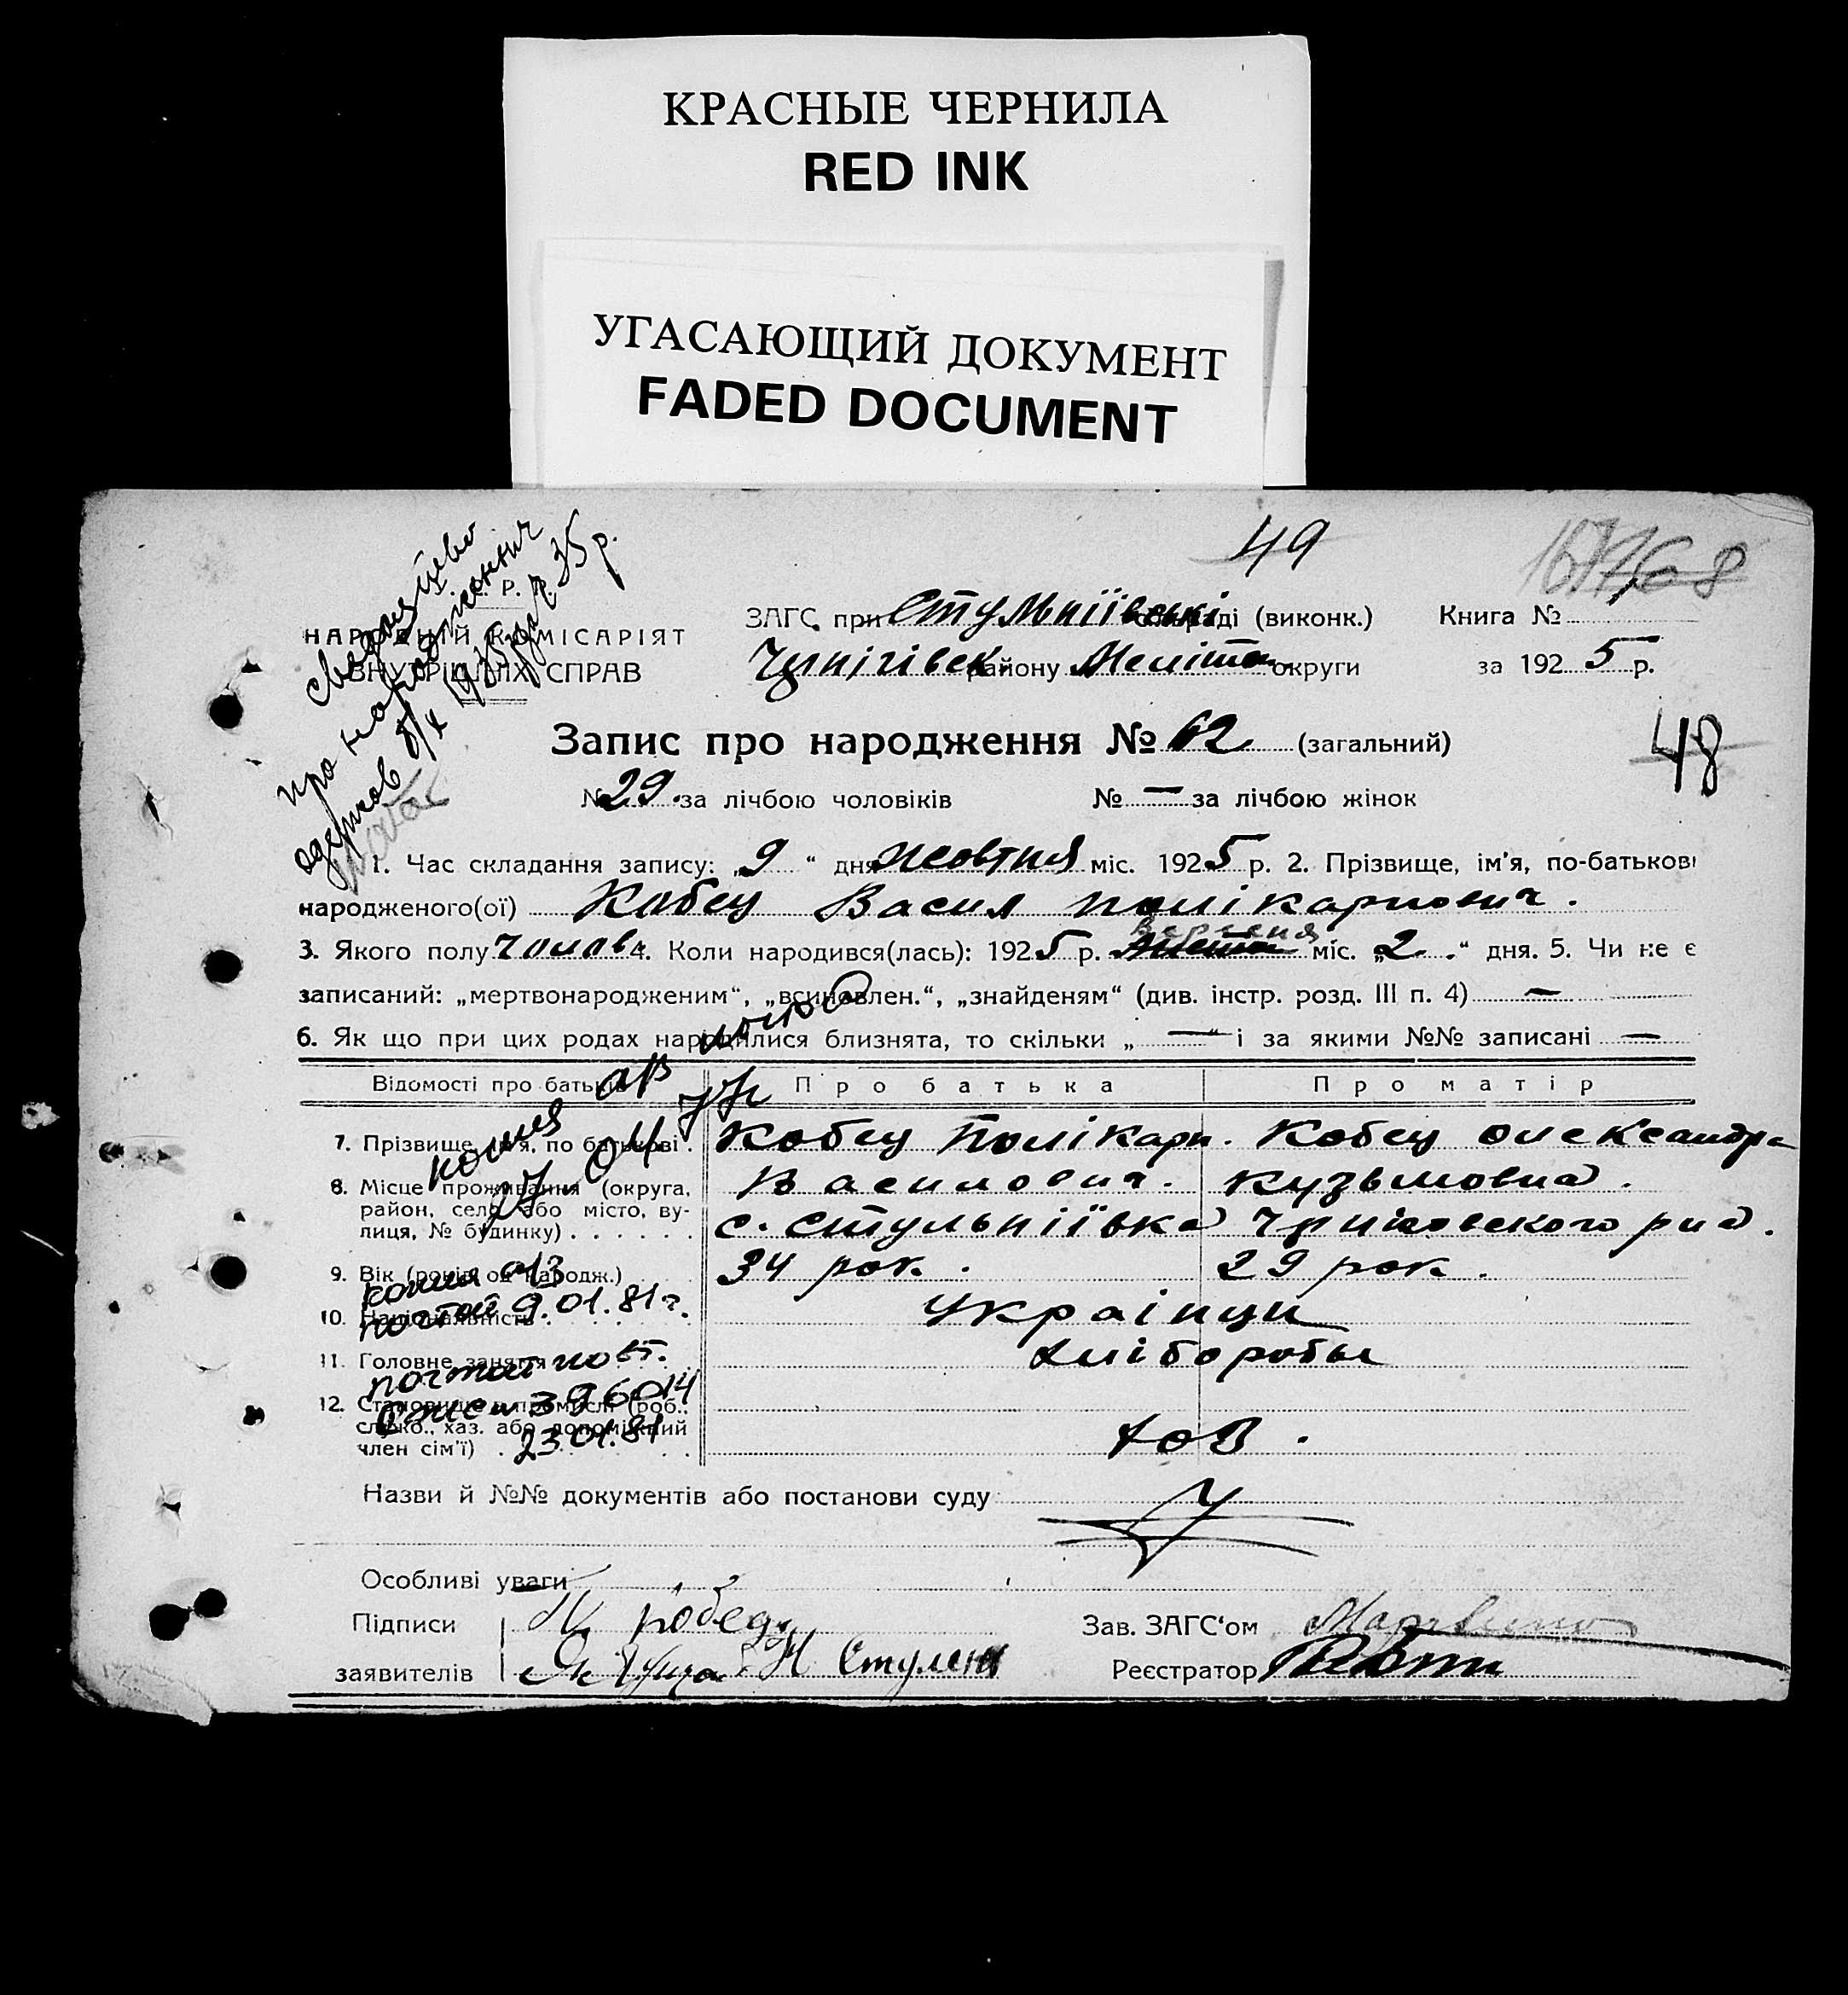 КРАСНЫЕ ЧЕРНИЛА
RED INK
УГАСАЮЩИЙ ДОКУМЕНТ
FADED DOCUMENT
49
168
Р.
НАРОДНІЙ КОМІСАРІЯТ
ВНУТРІШНІХ СПРАВ
свідоцтво
про народження
одержав 8/X 1935 р.
35 р.
ЗАГС при Стульніївській раді (виконк.) Книга №
Чернігівск. району Меліт. округи за 1925 р.
Запис про народження № 62 (загальний)
48
№ 29. за лічбою чоловіків № — за лічбою жінок
1. Час складання запису: „9“ дня жовтня міс. 1925 р. 2. Прізвище, ім'я, по-батькові
народженого(ої) Кобец Васил Полікарпович.
вересня
3. Якого полу чолов. 4. Коли народився(лась): 1925 р. міс. „2.“ дня. 5. Чи не є
записаний: „мертвонародженим“, „всиновлен.“, „знайденям“ (див. інстр. розд. III п. 4) —
6. Як що при цих родах народилися близнята, то скільки „ — “ і за якими №№ записані —
Відомості про батьків Про батька Про матір
7. Прізвище, ім'я, по батькові Кобец Полікарп. Кобец Олександра
Василович. Кузьмовна.
8. Місце проживання (округа,
район, село або місто, ву-
лиця, № будинку) с. Стульніївка Черніговского рид.
9. Вік (років од народж.) 34 рок. 29 рок.
10. Національність Українци
11. Головне заняття Хлібороби
12. Становище в промислі (роб.,
служб., хаз. або допоміжний
член сім'ї) хоз.
копия
копия
9.01.81 г.
396014
23.01.81
Назви й №№ документів або постанови суду
Особливі уваги —
Підписи
заявителів
Зав. ЗАГС'ом
Реєстратор